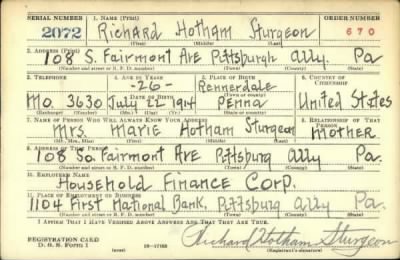 SERIAL NUMBER 1. NAME (Print) ORDER NUMBER
2072 Richard Hotham Sturgeon 670
(First) (Middle) (Last)
2. ADDRESS (Print)
108 S. Fairmont Ave Pittsburgh Ally. Pa
(Number and street or R. F. D. number) (Town) (County) (State)
3. TELEPHONE 4. AGE IN YEARS 5. PLACE OF BIRTH 6. COUNTRY OF CITIZENSHIP
-26- Rennerdale
DATE OF BIRTH (Town or county)
Mo. 3630 July 22 1914 Penna United States
(Exchange) (Number) (Mo.) (Day) (Yr.) (State or country)
7. NAME OF PERSON WHO WILL ALWAYS KNOW YOUR ADDRESS 8. RELATIONSHIP OF THAT PERSON
Mrs. Marie Hotham Sturgeon Mother
(Mr., Mrs., Miss) (First) (Middle) (Last)
9. ADDRESS OF THAT PERSON
108 So. Fairmont Ave Pittsburg Ally Pa.
(Number and street or R. F. D. number) (Town) (County) (State)
10. EMPLOYER'S NAME
Household Finance Corp.
11. PLACE OF EMPLOYMENT OR BUSINESS
1104 First National Bank, Pittsburg Ally Pa.
(Number and street or R. F. D. number) (Town) (County) (State)
I AFFIRM THAT I HAVE VERIFIED ABOVE ANSWERS AND THAT THEY ARE TRUE.
REGISTRATION CARD
D. S. S. FORM 1 (over) 16-17105 Richard Hotham Sturgeon
(Registrant's signature)